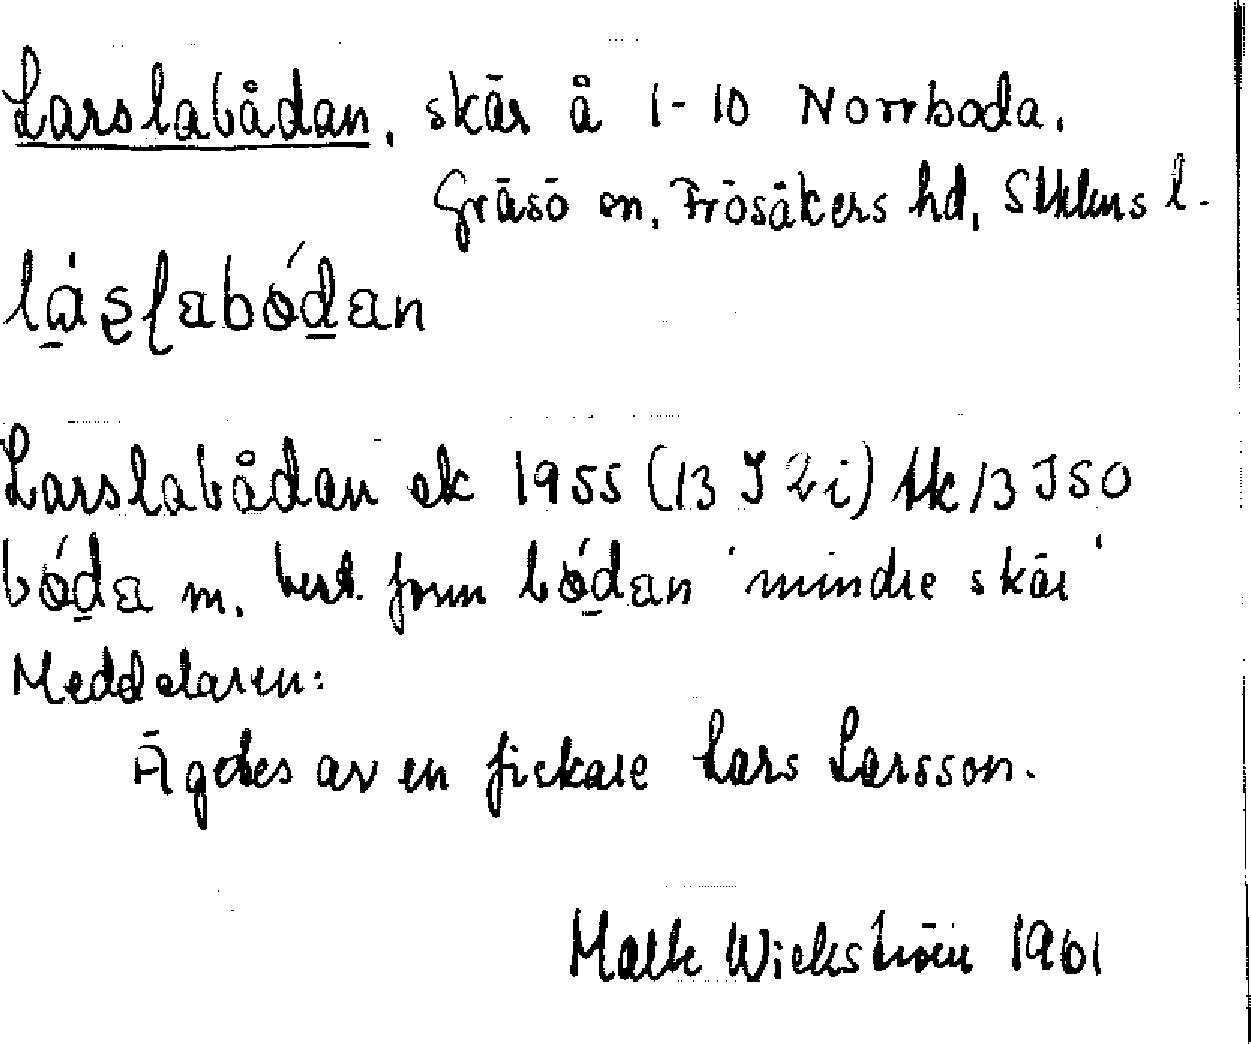 Larslabådan, skär å 1-10 Norrboda.
Gräsö sn, Frösåkers hd, Sthlms l.
Larslabådan ek 1955 (13 J 2i) tk 13 J SO
m. best. form 'mindre skär'
Meddelaren:
Ägdes av en fiskare Lars Larsson.
Malte Wickström 1961